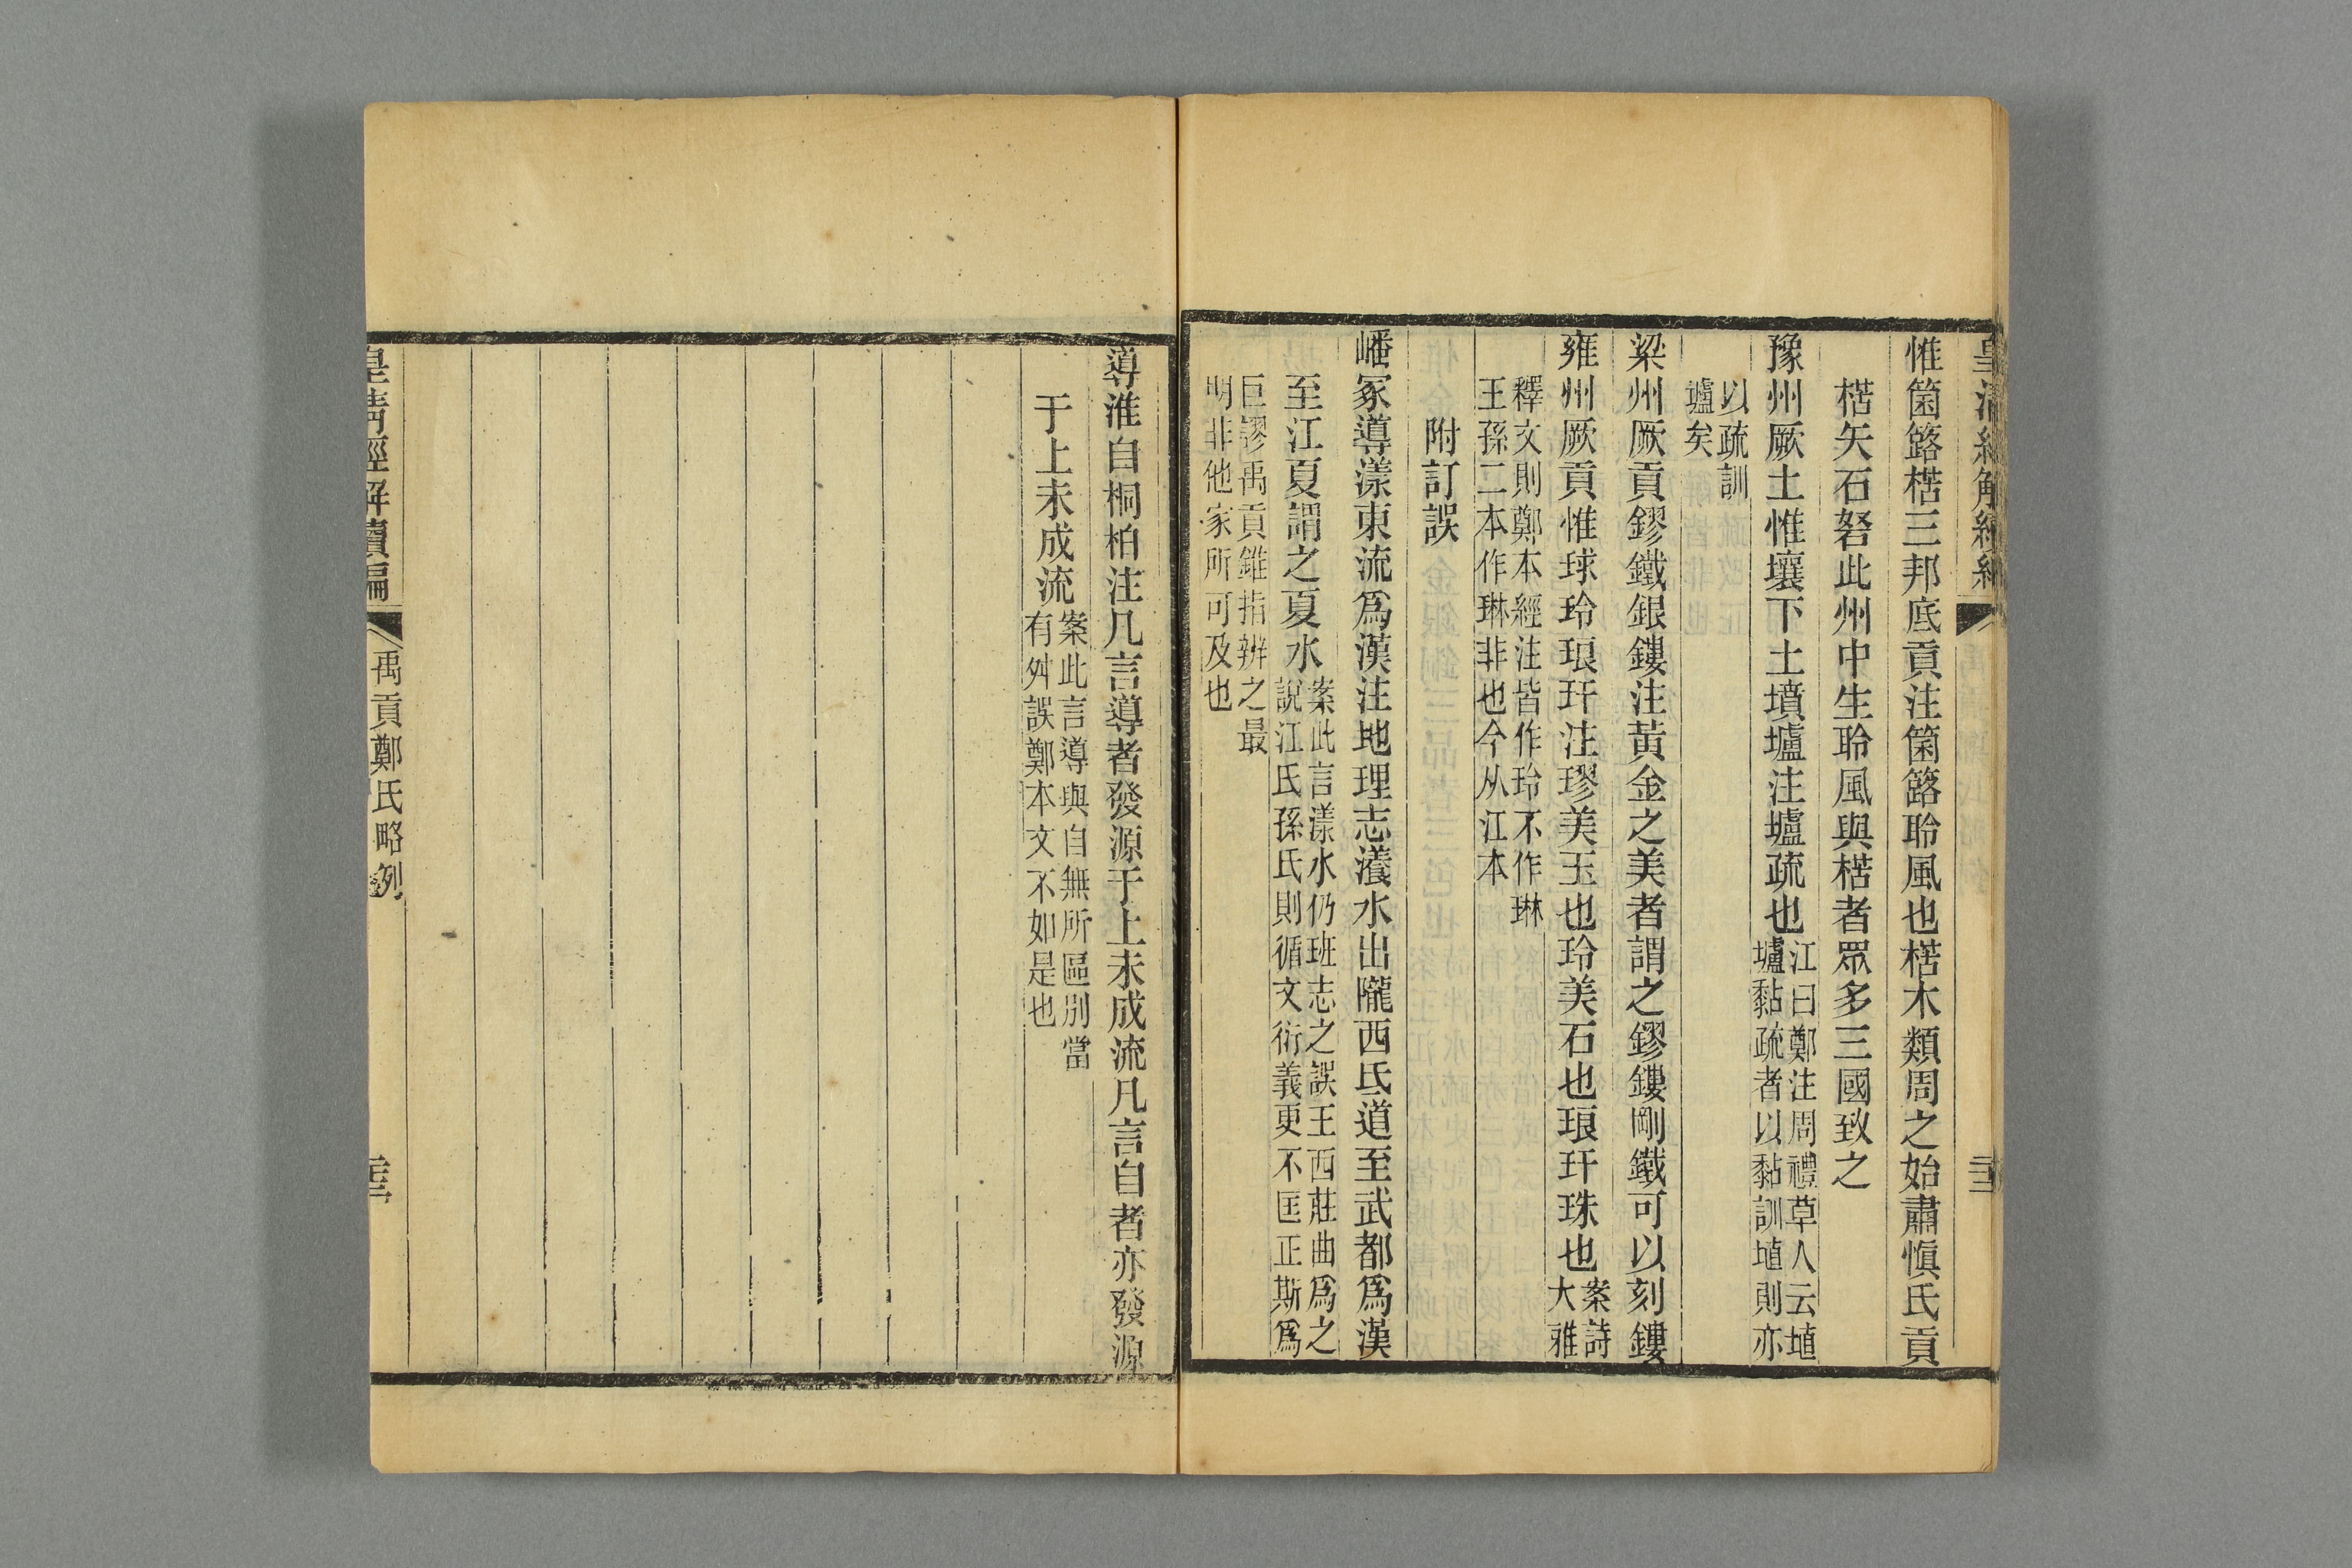 皇清經解續編
惟箘簵楛三邦底貢注箘簵聆風也楛木類周之始肅愼氏貢
楛矢石砮此州中生聆風與楛者眾多三國致之
豫州厥土惟壤下土墳壚注壚疏也
江曰鄭注周禮草人云埴
壚黏疏者以黏訓埴則亦
以疏訓
壚矣
梁州厥貢鏐鐵銀鏤注黃金之美者謂之鏐鏤剛鐵可以刻鏤
雍州厥貢惟球玲琅玕注璆美玉也玲美石也琅玕珠也
案詩
大雅
釋文則鄭本經注皆作玲不作琳
王孫二本作琳非也今从江本
附訂誤
嶓冢導漾東流爲漢注地理志瀁水出隴西氐道至武都爲漢
至江夏謂之夏水
案此言漾水仍班志之誤王西莊曲爲之
說江氏孫氏則循文衍義更不匡正斯爲
巨謬禹貢錐指辨之最
明非他家所可及也
導淮自桐柏注凡言導者發源于上未成流凡言自者亦發源
于上未成流
案此言導與自無所區別當
有舛誤鄭本文不如是也
皇清經解續編
禹貢鄭氏略例